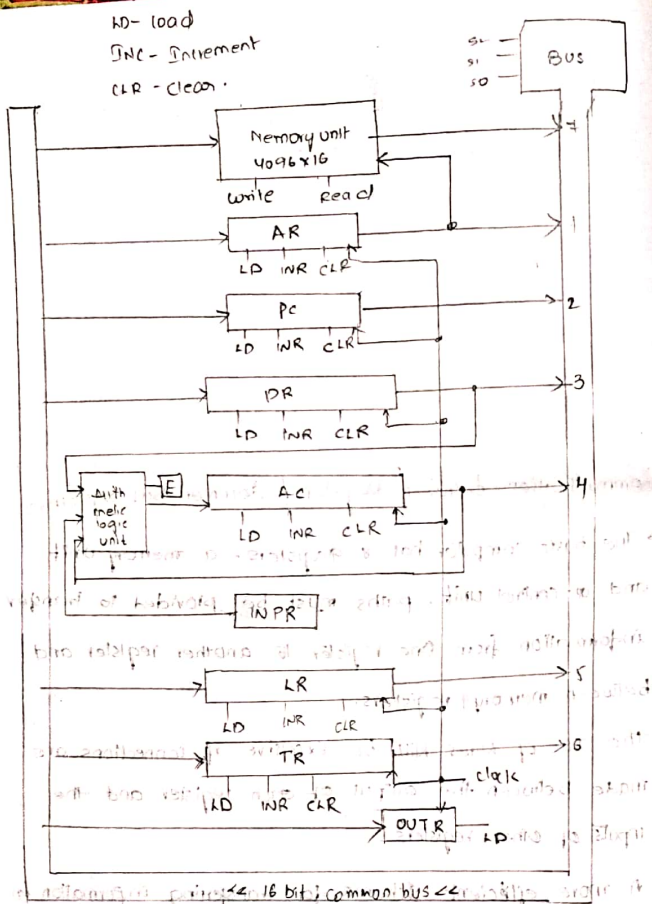 LD- load
INC - Increment
CLR - Clear.
S2
S1
S0
BUS
Memory unit
4096x16
7
Write Read
AR
1
LD INR CLR
PC
2
LD INR CLR
DR
3
LD INR CLR
Arith
metic
logic
unit
E
AC
4
LD INR CLR
INPR
LR
5
LD INR CLR
TR
6
clock
LD INR CLR
OUTR
LD
<< 16 bit ; common bus <<